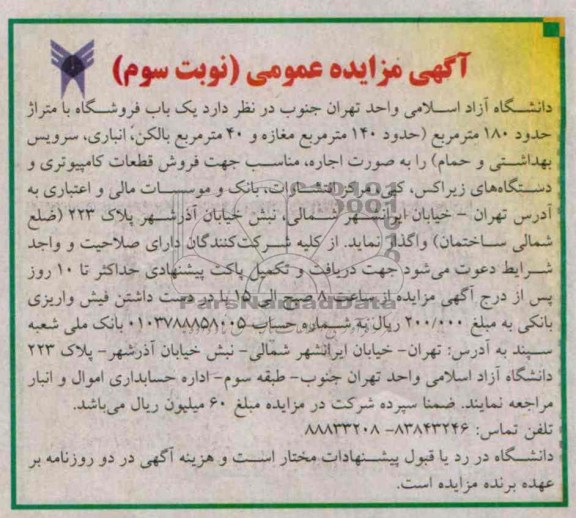 آگهی مزایده عمومی (نوبت سوم)
دانشگاه آزاد اسلامی واحد تهران جنوب در نظر دارد یک باب فروشگاه با متراژ
حدود ۱۸۰ مترمربع (حدود ۱۴۰ مترمربع مغازه و ۴۰ مترمربع بالکن، انباری، سرویس
بهداشتی و حمام) را به صورت اجاره، مناسب جهت فروش قطعات کامپیوتری و
دستگاه‌های زیراکس، کپی، مرکز انتشارات، بانک و موسسات مالی و اعتباری به
آدرس تهران - خیابان ایرانشهر شمالی، نبش خیابان آذرشهر پلاک ۲۲۳ (ضلع
شمالی ساختمان) واگذار نماید. از کلیه شرکت‌کنندگان دارای صلاحیت و واجد
شرایط دعوت می‌شود جهت دریافت و تکمیل پاکت پیشنهادی حداکثر تا ۱۰ روز
پس از درج آگهی مزایده از ساعت ۸ صبح الی ۱۵ با در دست داشتن فیش واریزی
بانکی به مبلغ ۲۰۰/۰۰۰ ریال به شماره حساب ۰۱۰۳۷۸۸۸۵۸۰۰۵ بانک ملی شعبه
سپند به آدرس: تهران- خیابان ایرانشهر شمالی- نبش خیابان آذرشهر- پلاک ۲۲۳
دانشگاه آزاد اسلامی واحد تهران جنوب- طبقه سوم- اداره حسابداری اموال و انبار
مراجعه نمایند. ضمنا سپرده شرکت در مزایده مبلغ ۶۰ میلیون ریال می‌باشد.
تلفن تماس: ۸۳۸۴۳۲۴۶- ۸۸۸۳۳۲۰۸
دانشگاه در رد یا قبول پیشنهادات مختار است و هزینه آگهی در دو روزنامه بر
عهده برنده مزایده است.
ParsNamadData